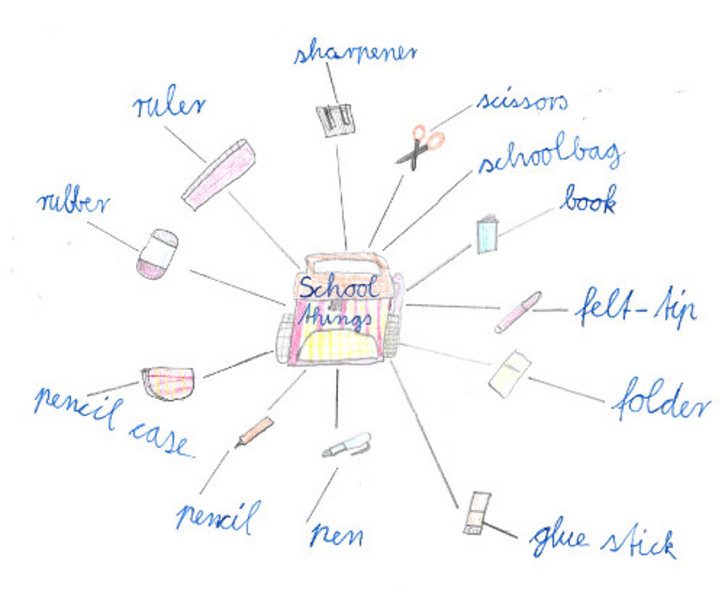 sharpener
ruler
scissors
schoolbag
rubber
book
School
things
felt-tip
pencil case
folder
pencil
pen
glue stick